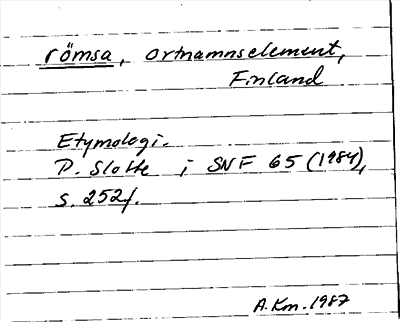 römsa, ortnamnselement,
Finland
Etymologi.
P. Slotte i SNF 65 (1984),
s. 252f.
A.Km. 1987